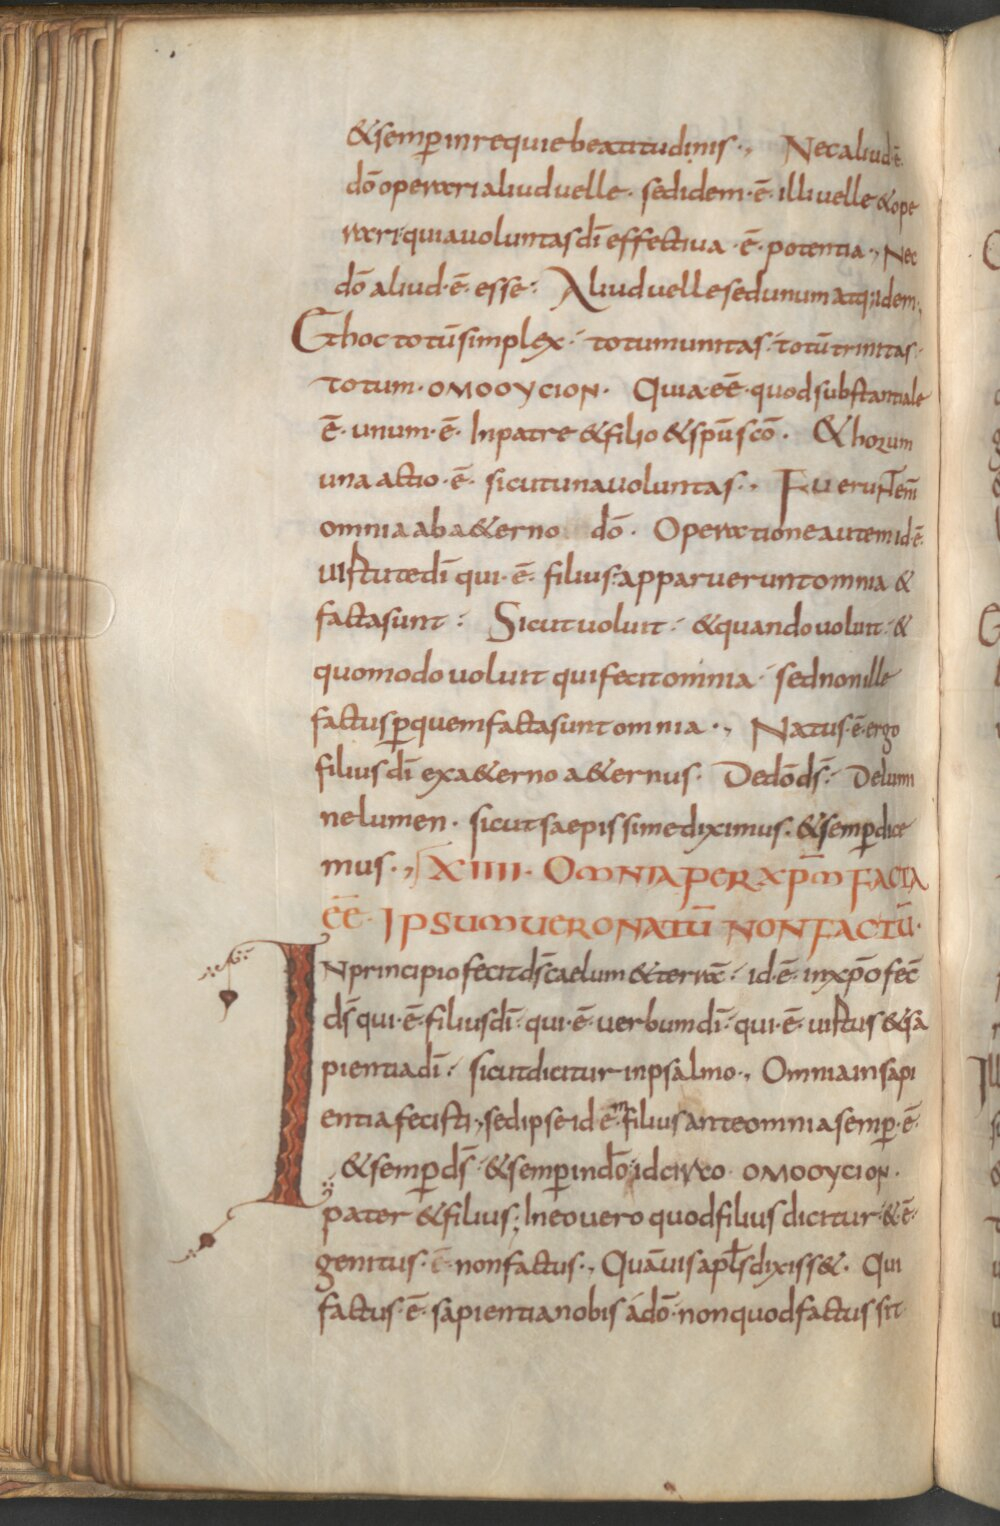 &semp̲ inrequiebeatitudinis·, Necaliud·ē·
dō operari aliuduelle· sedidem·ē· illi uelle &ope
rari·quiauoluntasdī effectiua·ē· potentia·, Nec
dō aliud·ē· esse: Aliuduellesedunumatq;idem·,
Ethoctotūsimplex· totumunitas· totūtrinitas·
totum·omooycion· Quia·eē·quodsubstantiale
ē· unum·ē· Inpatre &filio &sp̄usc̄o· &horum
una actio·ē· sicutunauoluntas·, Fuerunt em̄
omniaaba&erno dō· Operationeautemid·ē·
uirtutedī qui·ē· filius:apparueruntomnia &
factasunt: Sicutuoluit· &quandouoluit· &
quomodouoluit quifecitomnia· sednonille
factusp̲quemfactasuntomnia·, Natus·ē·ergo
filiusdī exa&erno a&ernus· Dedōds̄· Delumi
nelumen· sicutsaepissimediximus· &semp̲dice
mus·, XIIII· Omniaperxp̄m facta
eē· Ipsumueronatū nonfactū·
Inprincipiofecitds̄caelum&terrā· id·ē· inxp̄ofec̄
ds̄ qui·ē·filiusdī· qui·ē· uerbumdī·qui·ē· uirtus &sa
pientiadī· sicutdiciturinpsalmo·, Omniainsapi
entiafecisti·,sedipseid·ē·m filiusanteomniasemp̲·ē·
&semp̲ds̄· &semp̲indō·idcirco· omooycion·
pater &filius·, Ineouero quodfilius dicitur·&·ē·
genitus·ē·nonfactus·, Quāuisapl̄sdixiss&· Qui
factus·ē·sapientianobis ádō·nonquodfactussit